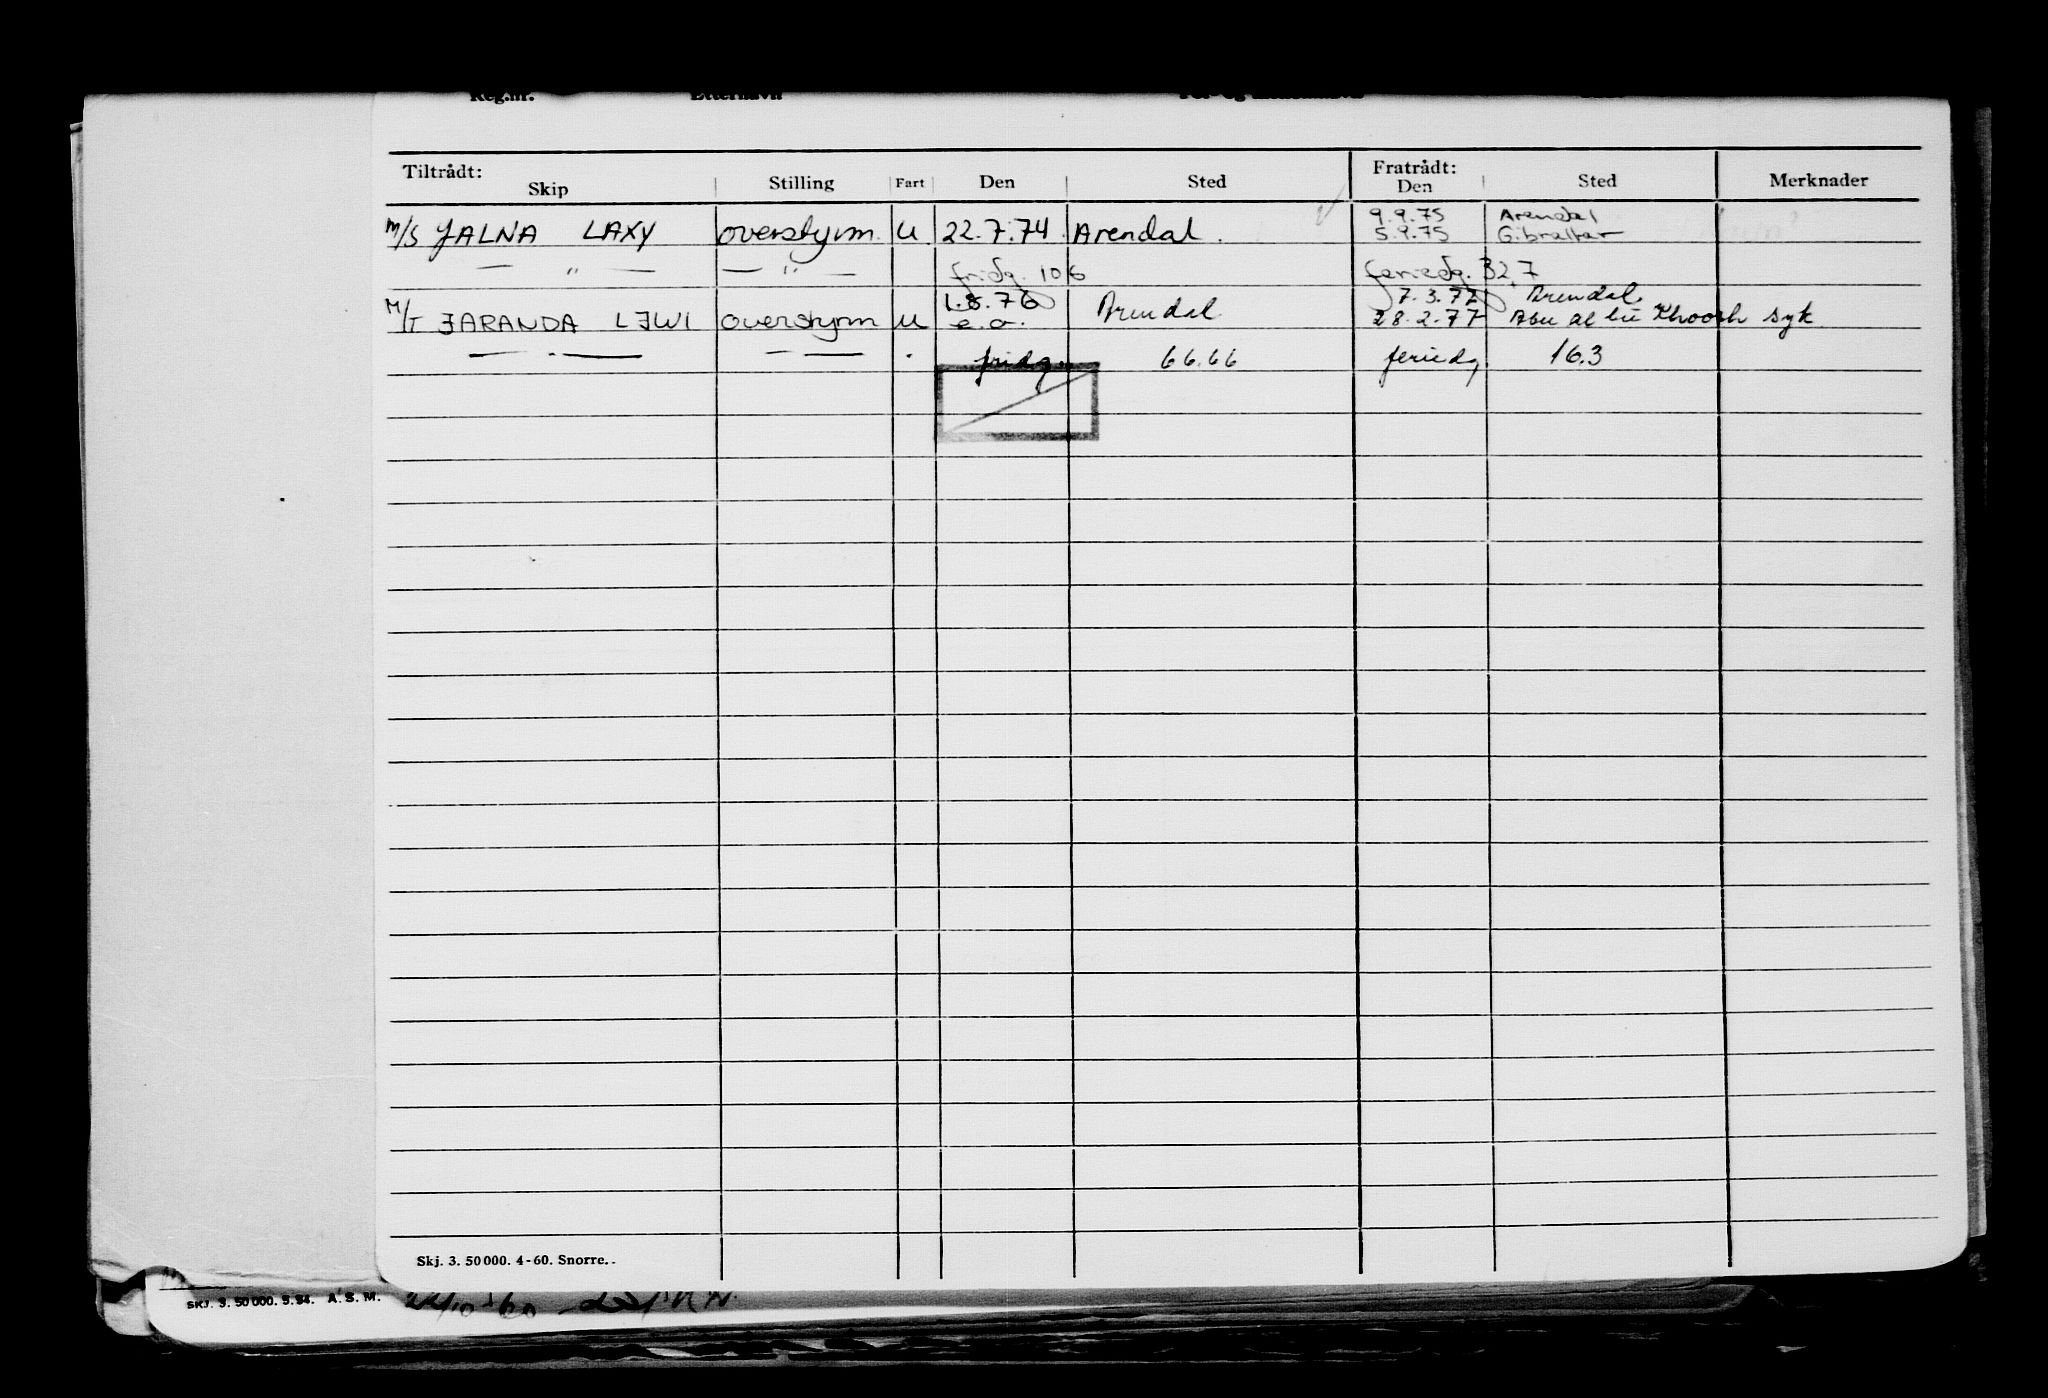 Reg.nr. Etternavn
Tiltrådt: Skip Stilling Fart Den Sted Fratrådt: Den Sted Merknader
9.9.75 Arendal
M/S JALNA LAXY overstyrm. U 22.7.74 Arendal. 5.9.75 Gibraltar
— " — — " — fridg. 106 feriedg. 32 7
1.8.76 7.3.77 Arendal
M/T JARANDA LJWI overstyrm U e.o. Arendal 28.2.77 Abu al bu Khoosh syk
— . — — — . fridg. 66.66 feriedg 16.3
Skj. 3. 50 000. 4-60. Snorre.
SKJ. 3. 50 000. 5.54. A. S. M.